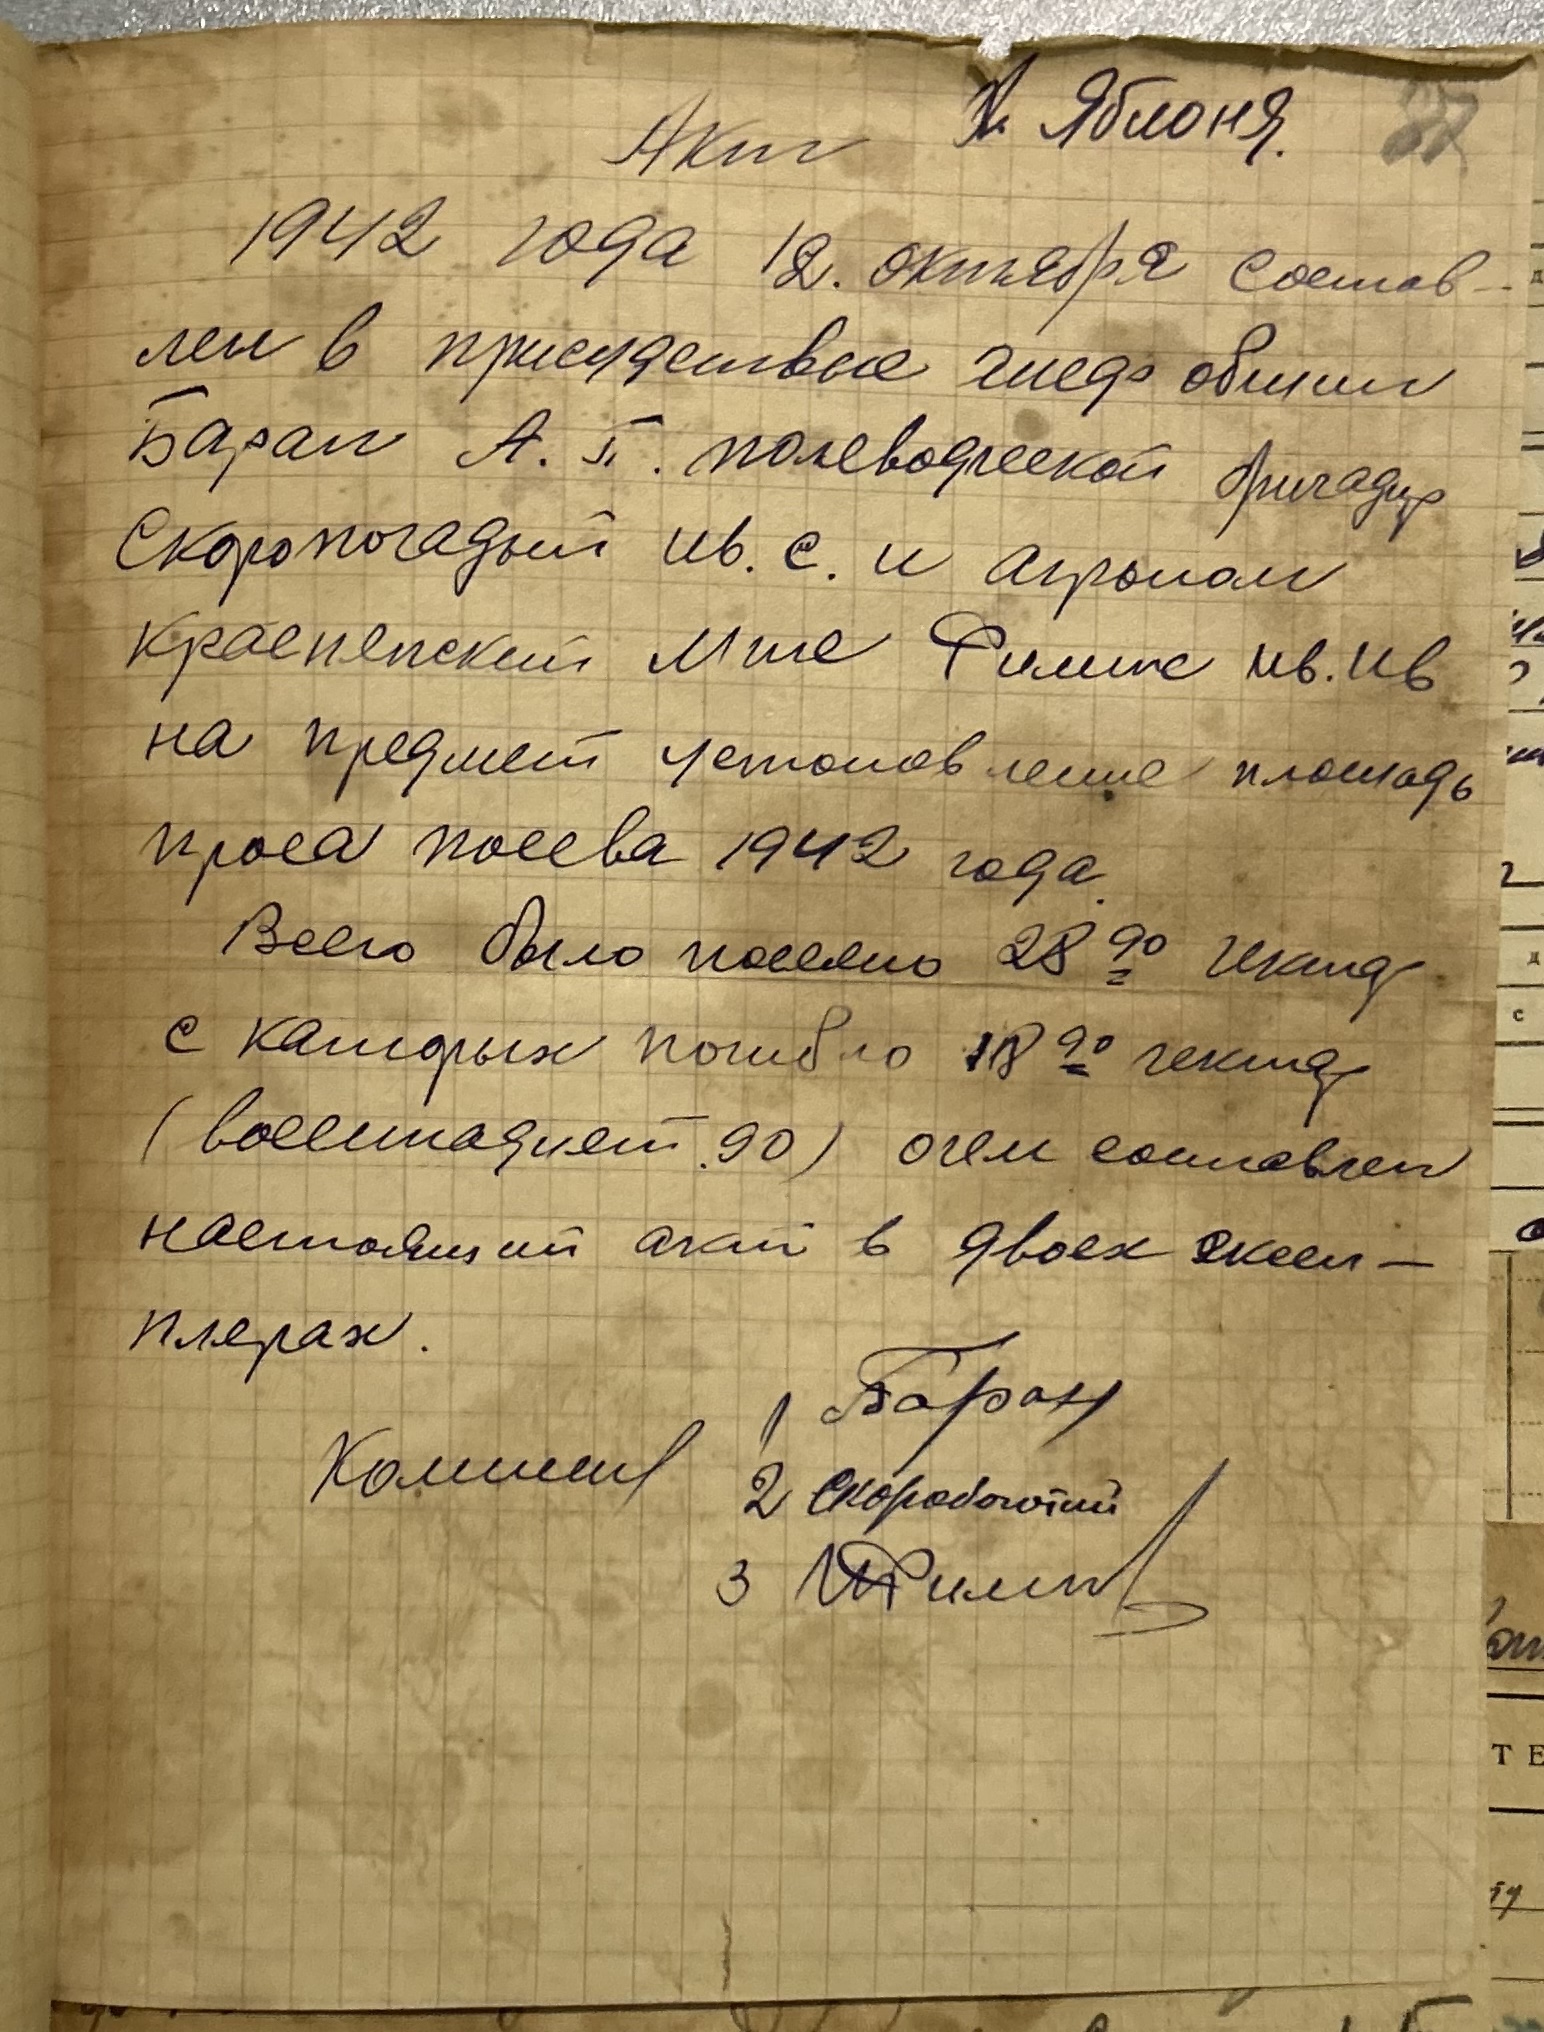 Акт х. Яблоня. 37
1942 года 12. октября состав-
лен в присудствие общин
Баран А. П. полеводческой бригадир
Скоропогадый Ив. С. и агроном
МТС Филип Ив. Ив
на предмет устоновление площадь
проса посева 1942 года.
Всего было посеяно 28 90 гектар
с каторых погибло 18 90 гектар
(восемнадцет .90) очем составлен
настоящий акт в двоех
плярах.
1 Баран
2 Скоробогатий
3